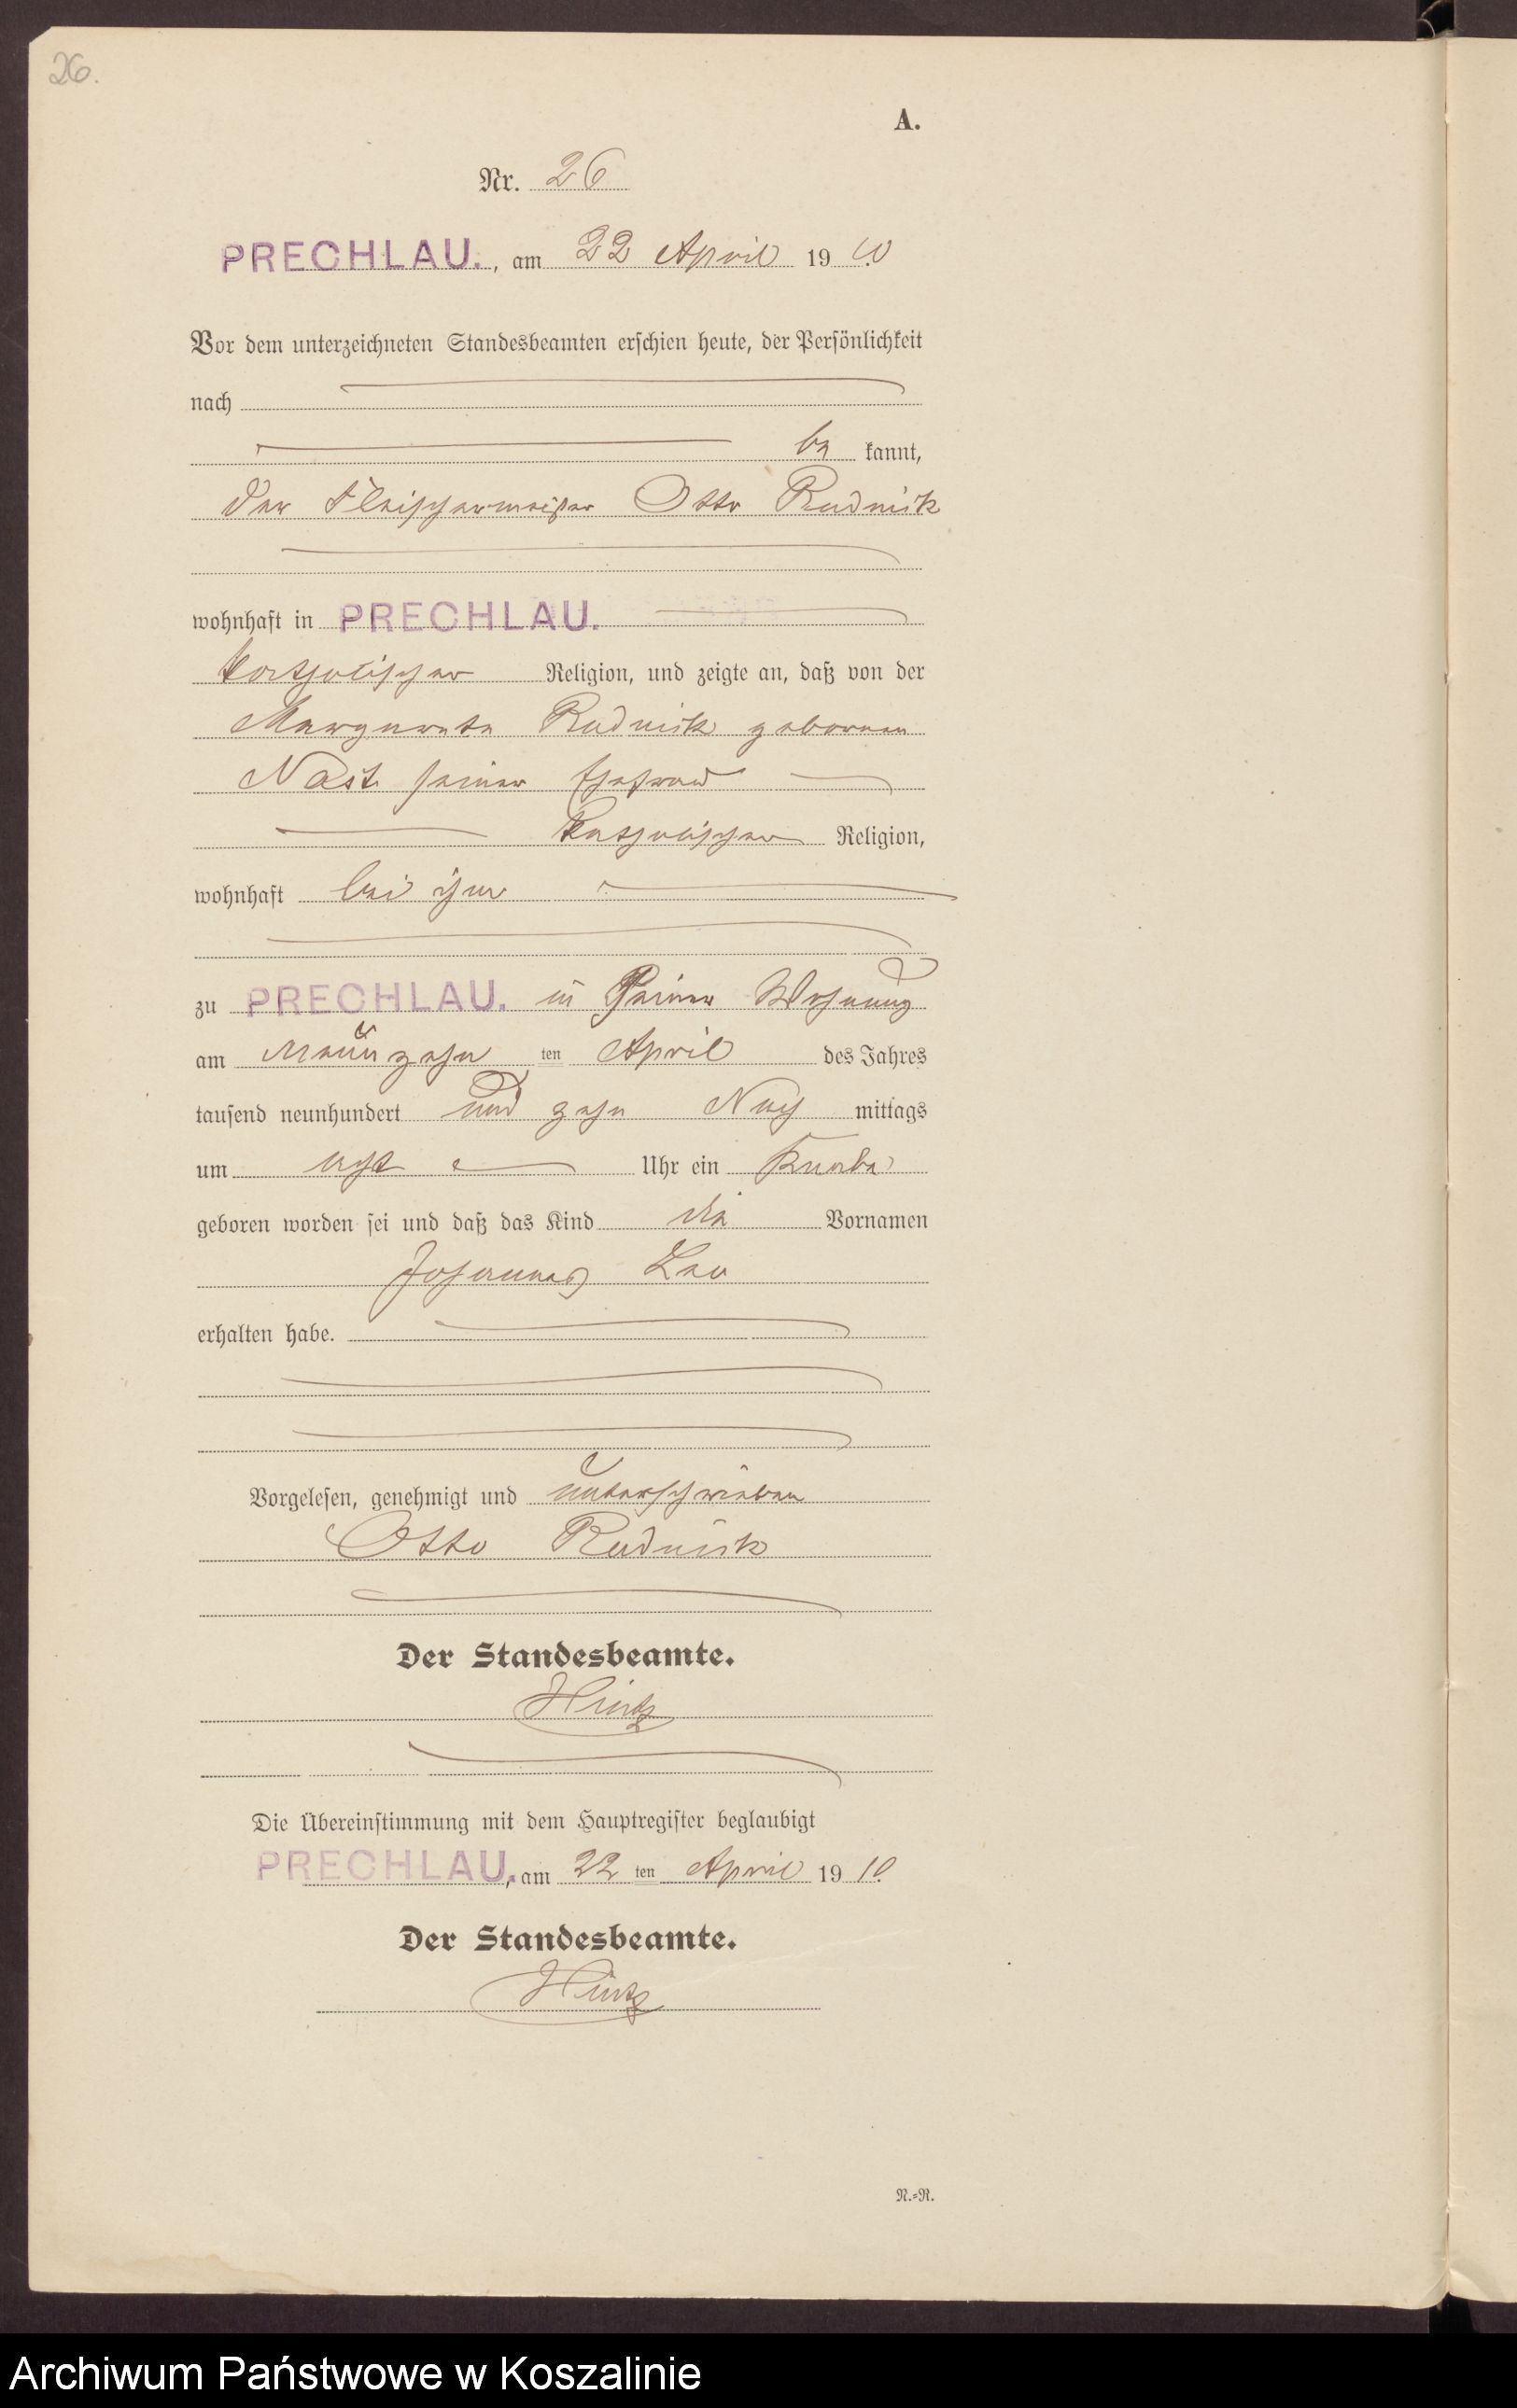 26.
A.
Nr. 26
PRECHLAU., am 22 April 1910
Vor dem unterzeichneten Standesbeamten erschien heute, der Persönlichkeit
nach
be kannt,
der Fleischermeister Otto Rudnik
wohnhaft in PRECHLAU.
katholischer Religion, und zeigte an, daß von der
Margarete Rudnik geborenen
Nast seiner Ehefrau
katholischer Religion,
wohnhaft bei ihm
zu PRECHLAU. in seiner Wohnung
am neunzehn ten April des Jahres
tausend neunhundert und zehn Nach mittags
um acht Uhr ein Knabe
geboren worden sei und daß das Kind die Vornamen
Johannes Leo
erhalten habe.
Vorgelesen, genehmigt und unterschrieben
Otto Rudnik
Der Standesbeamte.
Hintz
Die Übereinstimmung mit dem Hauptregister beglaubigt
PRECHLAU., am 22 ten April 1910.
Der Standesbeamte.
Hintz
N.=R.
Archiwum Państwowe w Koszalinie